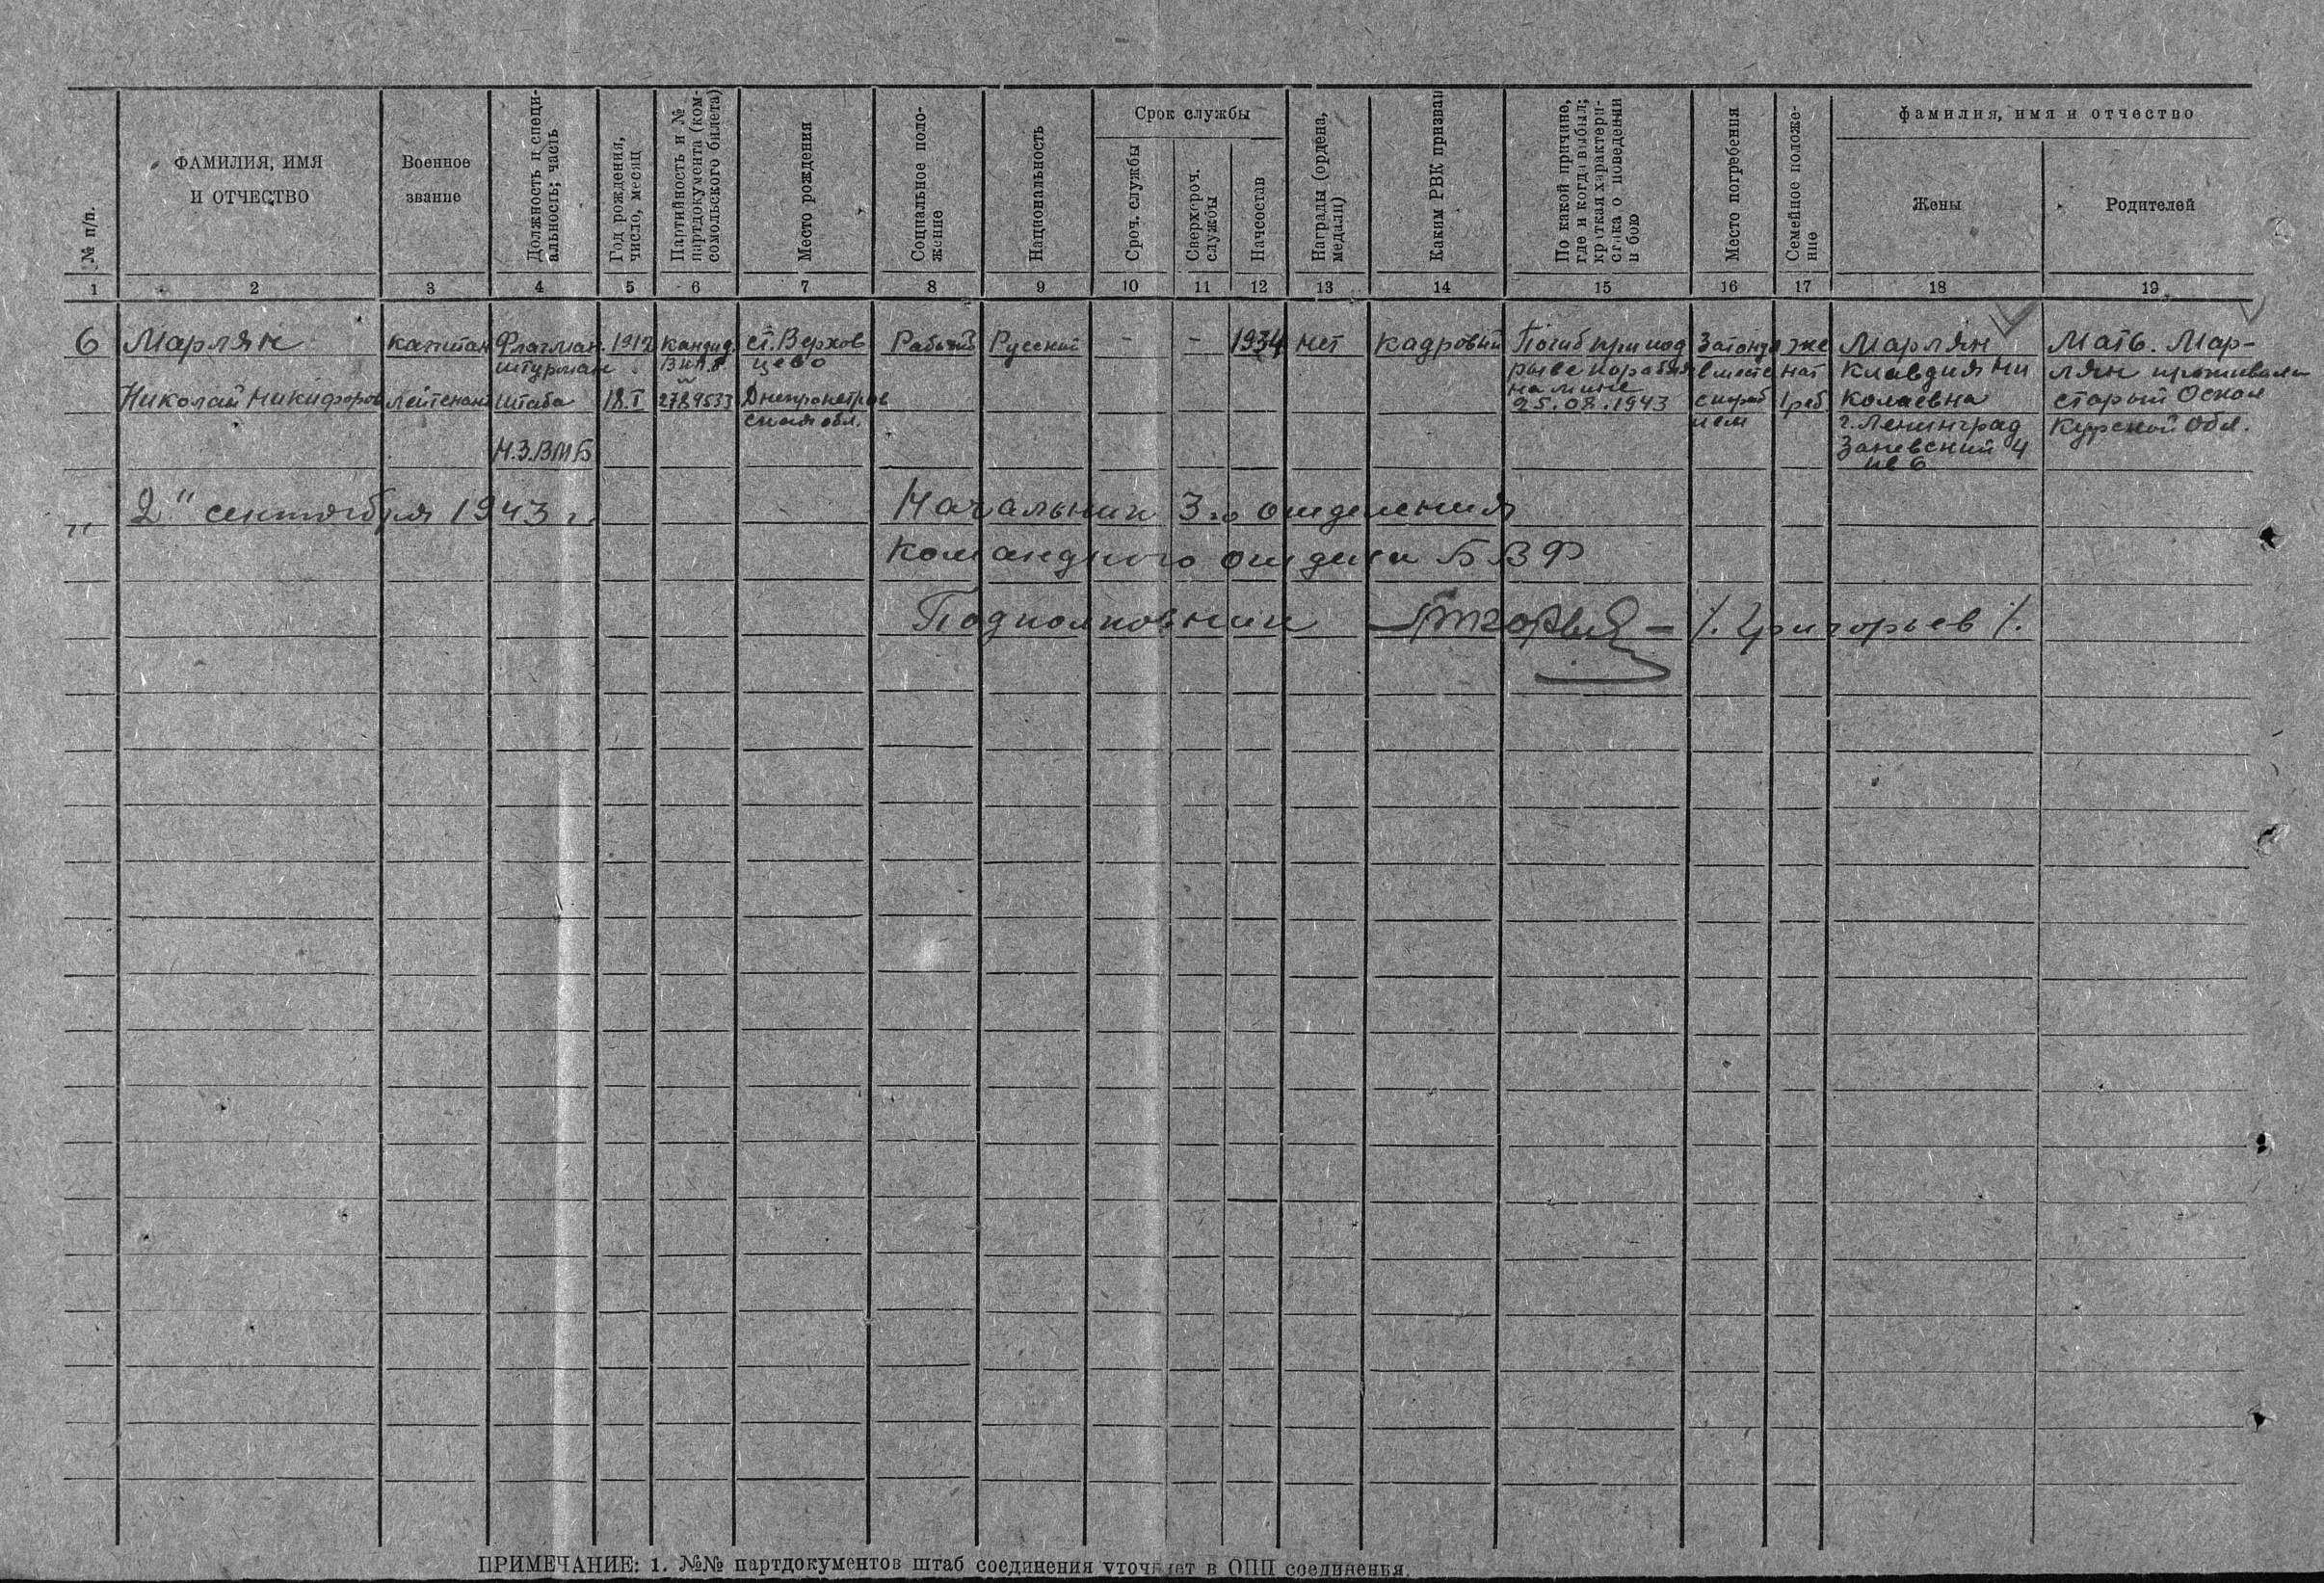 № п/п.
ФАМИЛИЯ, ИМЯ
И ОТЧЕСТВО
Военное
звание
Должность и специ-
альность; часть
Год рождения,
число, месяц
Партийность и №
партдокумента (ком-
сомольского билета)
Место рождения
Социальное поло-
жение
Национальность
Срок службы
Сроч. службы
Сверхсроч.
службы
Начсостав
Награды (ордена,
медали)
Каким РВК призван
По какой причине,
где и когда выбыл;
краткая характери-
стика о поведении
в бою
Место погребения
Семейное положе-
ние
фамилия, имя и отчество
Жены
Родителей
1 2 3 4 5 6 7 8 9 10 11 12 13 14 15 16 17 18 19
6
Марлян
Николай Никифоров
капитан
лейтенант
Флагман.
штурман
штаба
1912
18.I
кандид.
2789533
ст. Верхов
цево
Днепропетров
ская обл.
Рабочий
Русский
-
-
1934
нет
кадровый
Погиб при под
рыве корабля
на мине
25.08.1943
Затонул
вместе
с кораб
лем
же
нат
1 реб.
Марлян
Клавдия Ни
колаевна
г. Ленинград
Заневский 4
кв 6
Мать. Мар-
лян проживала
старый Оскол
Курской обл.
„ 2" сентября 1943 г.
Начальник 3го отделения
командного отдела КБФ
Подполковник
/. Григорьев /.
ПРИМЕЧАНИЕ: 1. №№ партдокументов штаб соединения уточняет в ОПП соединения.